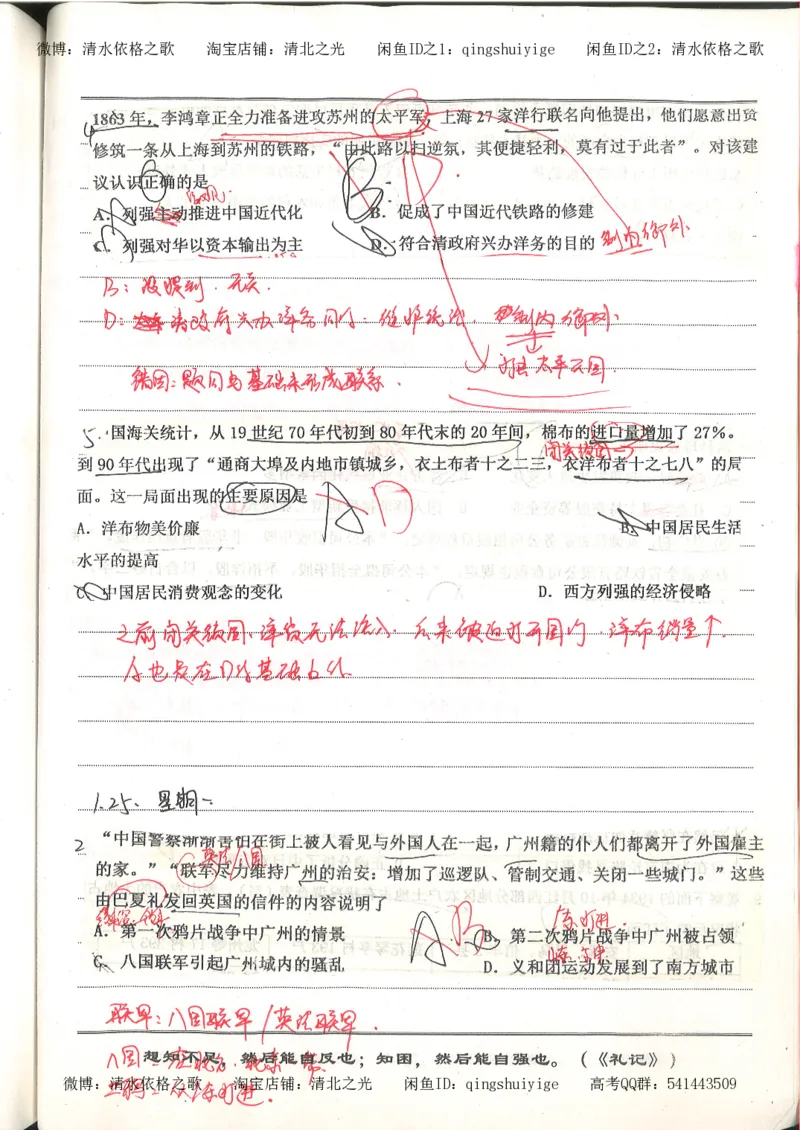 微博：清水依格之歌 淘宝店铺：清北之光 闲鱼ID之1：qingshuiyige 闲鱼ID之2：清水依格之歌
4 1863年，李鸿章正全力准备进攻苏州的太平军，上海27家洋行联名向他提出，他们愿意出资
修筑一条从上海到苏州的铁路，“由此路以扫逆氛，其便捷轻利，莫有过于此者”。对该建
议认识正确的是
A．列强主动推进中国近代化 B．促成了中国近代铁路的修建
C．列强对华以资本输出为主 D．符合清政府兴办洋务的目的 制内御外
B：没提到．无关．
D：清政府兴办洋务目的：维护统治 制内御外．
镇压太平天国．
错因：题问与基础未形成联系．
5．国海关统计，从19世纪70年代初到80年代末的20年间，棉布的进口量增加了27%。
闭关锁国→
到90年代出现了“通商大埠及内地市镇城乡，衣土布者十之二三，衣洋布者十之七八”的局
面。这一局面出现的主要原因是 A D
A．洋布物美价廉 B．中国居民生活
水平的提高
C．中国居民消费观念的变化 D．西方列强的经济侵略
之前闭关锁国，洋货无法流入，后来被迫打开国门，洋布销量↑．
A也是在D的基础上的．
1.25．星期一
2 “中国警察渐渐害怕在街上被人看见与外国人在一起，广州籍的仆人们都离开了外国雇主
英法/八国
的家。”“联军尽力维持广州的治安：增加了巡逻队、管制交通、关闭一些城门。”这些
由巴夏礼发回英国的信件的内容说明了
A．第一次鸦片战争中广州的情景 A B B．第二次鸦片战争中广州被占领
C．八国联军引起广州城内的骚乱 D．义和团运动发展到了南方城市
联军：八国联军/英法联军．
想知不足，然后能自反也；知困，然后能自强也。（《礼记》）
微博：清水依格之歌 淘宝店铺：清北之光 闲鱼ID：qingshuiyige 高考QQ群：541443509